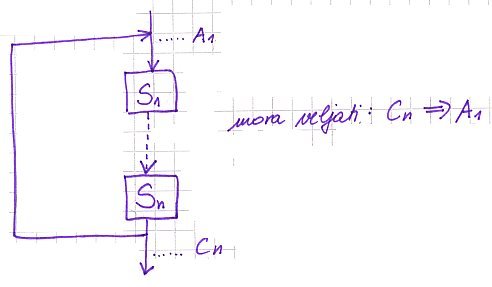 ..... A₁
S₁
mora veljati: Cₙ ⇒ A₁
Sₙ
...... Cₙ